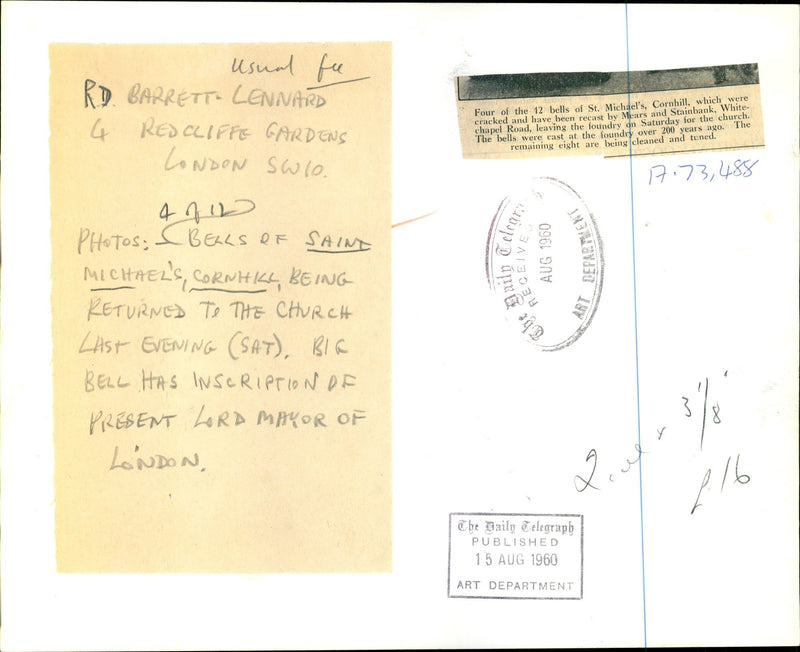 usual fee
RD. BARRETT-LENNARD
4 REDCLIFFE GARDENS
LONDON SW10.
4 of 12
PHOTOS: BELLS OF SAINT
MICHAEL'S, CORNHILL, BEING
RETURNED TO THE CHURCH
LAST EVENING (SAT). BIG
BELL HAS INSCRIPTION OF
PRESENT LORD MAYOR OF
LONDON.
Four of the 12 bells of St. Michael's, Cornhill, which were
cracked and have been recast by Mears and Stainbank, White-
chapel Road, leaving the foundry on Saturday for the church.
The bells were cast at the foundry over 200 years ago. The
remaining eight are being cleaned and tuned.
17.73,488
The Daily Telegraph
RECEIVED
AUG 1960
ART DEPARTMENT
3 1/8"
p.16
The Daily Telegraph
PUBLISHED
15 AUG 1960
ART DEPARTMENT